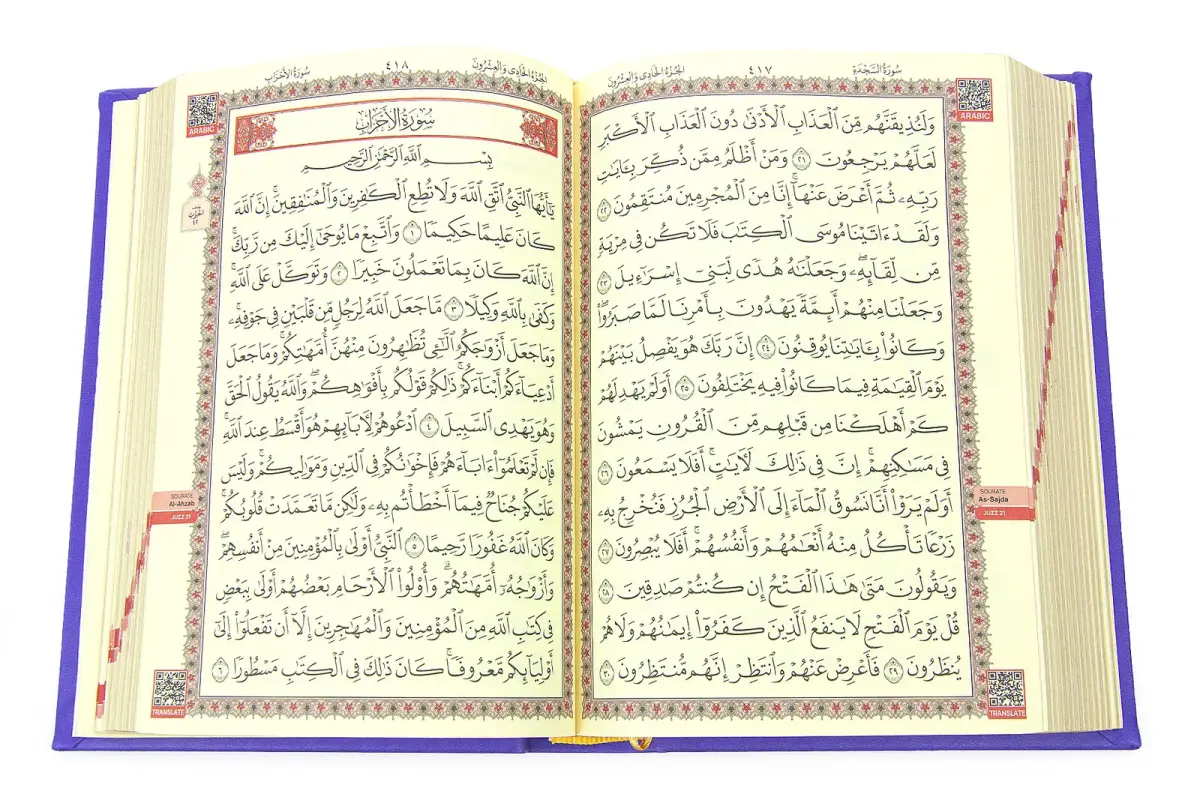 سُورَةُ السَّجْدَةِ
٤١٧
الجُزْءُ الحَادِى وَالعِشْرُونَ
ARABIC
وَلَنُذِيقَنَّهُم مِّنَ ٱلْعَذَابِ ٱلْأَدْنَىٰ دُونَ ٱلْعَذَابِ ٱلْأَكْبَرِ
لَعَلَّهُمْ يَرْجِعُونَ ٢١ وَمَنْ أَظْلَمُ مِمَّن ذُكِّرَ بِـَٔايَٰتِ
رَبِّهِۦ ثُمَّ أَعْرَضَ عَنْهَآ ۚ إِنَّا مِنَ ٱلْمُجْرِمِينَ مُنتَقِمُونَ ٢٢
وَلَقَدْ ءَاتَيْنَا مُوسَى ٱلْكِتَٰبَ فَلَا تَكُن فِى مِرْيَةٍ
مِّن لِّقَآئِهِۦ ۖ وَجَعَلْنَٰهُ هُدًى لِّبَنِىٓ إِسْرَٰٓءِيلَ ٢٣
وَجَعَلْنَا مِنْهُمْ أَئِمَّةً يَهْدُونَ بِأَمْرِنَا لَمَّا صَبَرُوا۟ ۖ
وَكَانُوا۟ بِـَٔايَٰتِنَا يُوقِنُونَ ٢٤ إِنَّ رَبَّكَ هُوَ يَفْصِلُ بَيْنَهُمْ
يَوْمَ ٱلْقِيَٰمَةِ فِيمَا كَانُوا۟ فِيهِ يَخْتَلِفُونَ ٢٥ أَوَلَمْ يَهْدِ لَهُمْ
كَمْ أَهْلَكْنَا مِن قَبْلِهِم مِّنَ ٱلْقُرُونِ يَمْشُونَ
فِى مَسَٰكِنِهِمْ ۚ إِنَّ فِى ذَٰلِكَ لَءَايَٰتٍ ۖ أَفَلَا يَسْمَعُونَ ٢٦
أَوَلَمْ يَرَوْا۟ أَنَّا نَسُوقُ ٱلْمَآءَ إِلَى ٱلْأَرْضِ ٱلْجُرُزِ فَنُخْرِجُ بِهِۦ
زَرْعًا تَأْكُلُ مِنْهُ أَنْعَٰمُهُمْ وَأَنفُسُهُمْ ۖ أَفَلَا يُبْصِرُونَ ٢٧
وَيَقُولُونَ مَتَىٰ هَٰذَا ٱلْفَتْحُ إِن كُنتُمْ صَٰدِقِينَ ٢٨
قُلْ يَوْمَ ٱلْفَتْحِ لَا يَنفَعُ ٱلَّذِينَ كَفَرُوٓا۟ إِيمَٰنُهُمْ وَلَا هُمْ
يُنظَرُونَ ٢٩ فَأَعْرِضْ عَنْهُمْ وَٱنتَظِرْ إِنَّهُم مُّنتَظِرُونَ ٣٠
SOURATE
As-Sajda
JUZZ 21
TRANSLATE
الجُزْءُ الحَادِى وَالعِشْرُونَ
٤١٨
سُورَةُ الأَحْزَابِ
ARABIC
سُورَةُ الأَحْزَابِ
بِسْمِ ٱللَّهِ ٱلرَّحْمَٰنِ ٱلرَّحِيمِ
يَٰٓأَيُّهَا ٱلنَّبِىُّ ٱتَّقِ ٱللَّهَ وَلَا تُطِعِ ٱلْكَٰفِرِينَ وَٱلْمُنَٰفِقِينَ ۗ إِنَّ ٱللَّهَ
كَانَ عَلِيمًا حَكِيمًا ١ وَٱتَّبِعْ مَا يُوحَىٰٓ إِلَيْكَ مِن رَّبِّكَ ۚ
إِنَّ ٱللَّهَ كَانَ بِمَا تَعْمَلُونَ خَبِيرًا ٢ وَتَوَكَّلْ عَلَى ٱللَّهِ ۚ
وَكَفَىٰ بِٱللَّهِ وَكِيلًا ٣ مَّا جَعَلَ ٱللَّهُ لِرَجُلٍ مِّن قَلْبَيْنِ فِى جَوْفِهِۦ ۚ
وَمَا جَعَلَ أَزْوَٰجَكُمُ ٱلَّٰٓـِٔى تُظَٰهِرُونَ مِنْهُنَّ أُمَّهَٰتِكُمْ ۚ وَمَا جَعَلَ
أَدْعِيَآءَكُمْ أَبْنَآءَكُمْ ۚ ذَٰلِكُمْ قَوْلُكُم بِأَفْوَٰهِكُمْ ۖ وَٱللَّهُ يَقُولُ ٱلْحَقَّ
وَهُوَ يَهْدِى ٱلسَّبِيلَ ٤ ٱدْعُوهُمْ لِءَابَآئِهِمْ هُوَ أَقْسَطُ عِندَ ٱللَّهِ ۚ
فَإِن لَّمْ تَعْلَمُوٓا۟ ءَابَآءَهُمْ فَإِخْوَٰنُكُمْ فِى ٱلدِّينِ وَمَوَٰلِيكُمْ ۚ وَلَيْسَ
عَلَيْكُمْ جُنَاحٌ فِيمَآ أَخْطَأْتُم بِهِۦ وَلَٰكِن مَّا تَعَمَّدَتْ قُلُوبُكُمْ ۚ
وَكَانَ ٱللَّهُ غَفُورًا رَّحِيمًا ٥ ٱلنَّبِىُّ أَوْلَىٰ بِٱلْمُؤْمِنِينَ مِنْ أَنفُسِهِمْ ۖ
وَأَزْوَٰجُهُۥٓ أُمَّهَٰتُهُمْ ۗ وَأُو۟لُوا۟ ٱلْأَرْحَامِ بَعْضُهُمْ أَوْلَىٰ بِبَعْضٍ
فِى كِتَٰبِ ٱللَّهِ مِنَ ٱلْمُؤْمِنِينَ وَٱلْمُهَٰجِرِينَ إِلَّآ أَن تَفْعَلُوٓا۟ إِلَىٰٓ
أَوْلِيَآئِكُم مَّعْرُوفًا ۚ كَانَ ذَٰلِكَ فِى ٱلْكِتَٰبِ مَسْطُورًا ٦
SOURATE
Al-Ahzab
JUZZ 21
TRANSLATE